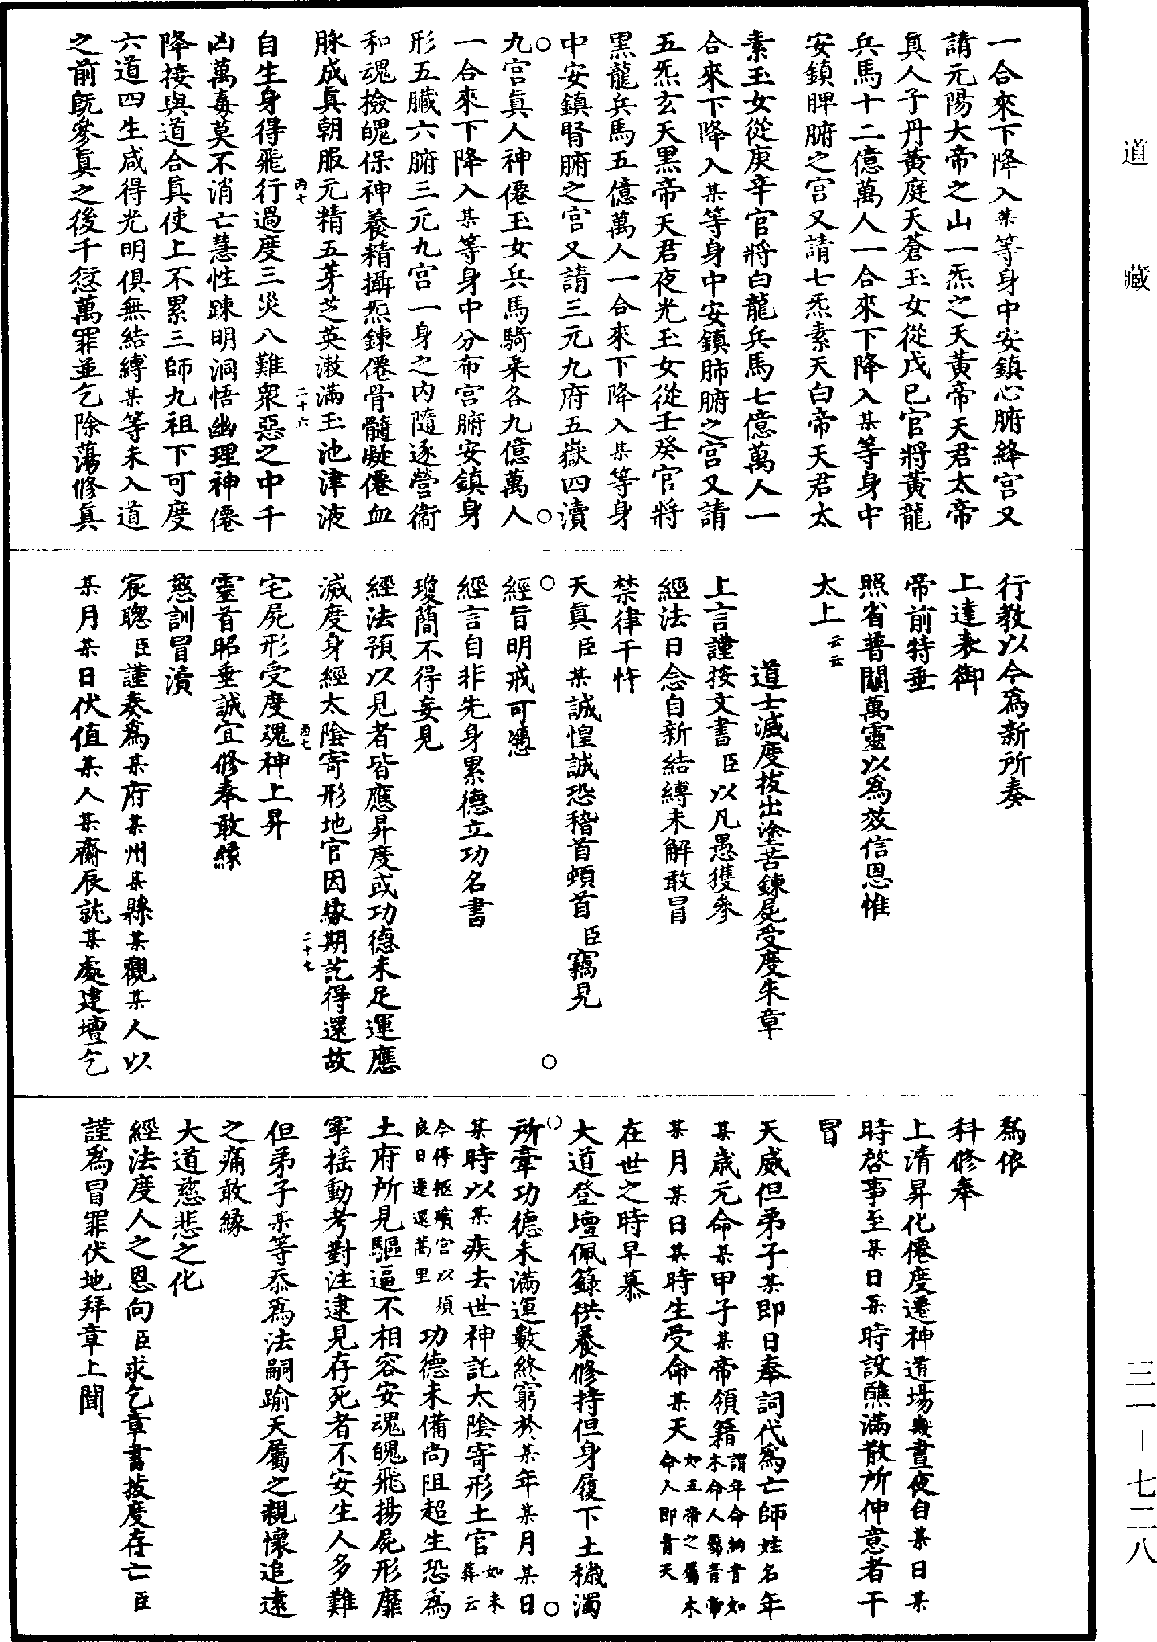 道藏
一合來下降入某等身中安鎮心腑絳宮又
請元陽大帝之山一炁之天黃帝天君太帝
真人子丹黃庭天蒼玉女從戊巳官將黃龍
兵馬十二億萬人一合來下降入某等身中
安鎮脾腑之宮又請七炁素天白帝天君太
素玉女從庚辛官將白龍兵馬七億萬人一
合來下降入某等身中安鎮肺腑之宮又請
五炁玄天黑帝天君夜光玉女從壬癸官將
黑龍兵馬五億萬人一合來下降入某等身
中安鎮腎腑之宮又請三元九府五嶽四瀆
九宮真人神僊玉女兵馬騎乘各九億萬人
一合來下降入某等身中分布宮腑安鎮身
形五臟六腑三元九宮一身之內隨逐營衞
和魂撿魄保神養精攝炁鍊僊骨髓凝僊血
脉成真朝服元精五芽芝英漱滿玉池津液
自生身得飛行過度三災八難衆惡之中千
凶萬毒莫不消亡慧性踈明洞悟幽理神僊
降接與道合真使上不累三師九祖下可度
六道四生咸得光明俱無結縛某等未入道
之前旣參真之後千愆萬罪並乞除蕩修真
丙七
二十六
行教以今爲新所奏
上達表御
帝前特垂
照省普關萬靈以爲效信恩惟
太上云云
道士滅度拔出塗苦鍊屍受度朱章
上言謹按文書臣以凡愚獲參
經法日念自新結縛未解敢冒
禁律干忤
天真臣某誠惶誠恐稽首頓首臣竊見
經旨明戒可憑
經言自非先身累德立功名書
瓊簡不得妄見
經法預以見者皆應昇度或功德未足運應
滅度身經太陰寄形地官因緣期訖得還故
宅屍形受度魂神上昇
靈音昭垂誠宜修奉敢緣
慈訓冒瀆
宸聰臣謹奏爲某府某州某縣某觀某人以
某月某日伏值某人某齋辰就某處建壇乞
丙七
二十七
爲依
科修奉
上清昇化僊度遷神道場幾晝夜自某日某
時啓事至某日某時設醮滿散所伸意者干
冒
天威但弟子某即日奉詞代爲亡師姓名年
某歲元命某甲子某帝領籍謂年命納音如木命人屬青帝
某月某日某時生受命某天如五帝之屬木命人即青天
在世之時早慕
大道登壇佩籙供養修持但身履下土穢濁
所韋功德未滿運數終窮於某年某月某日
某時以某疾去世神託太陰寄形土官如未葬云
今停柩殯宮以須良日遷還蒿里功德未備尚阻超生恐爲
土府所見驅逼不相容安魂魄飛揚屍形靡
寧搖動考對注逮見存死者不安生人多難
但弟子某等忝爲法嗣踰天屬之親懷追遠
之痛敢緣
大道慈悲之化
經法度人之恩向臣求乞章書拔度存亡臣
謹爲冒罪伏地拜章上聞
三一—七二八